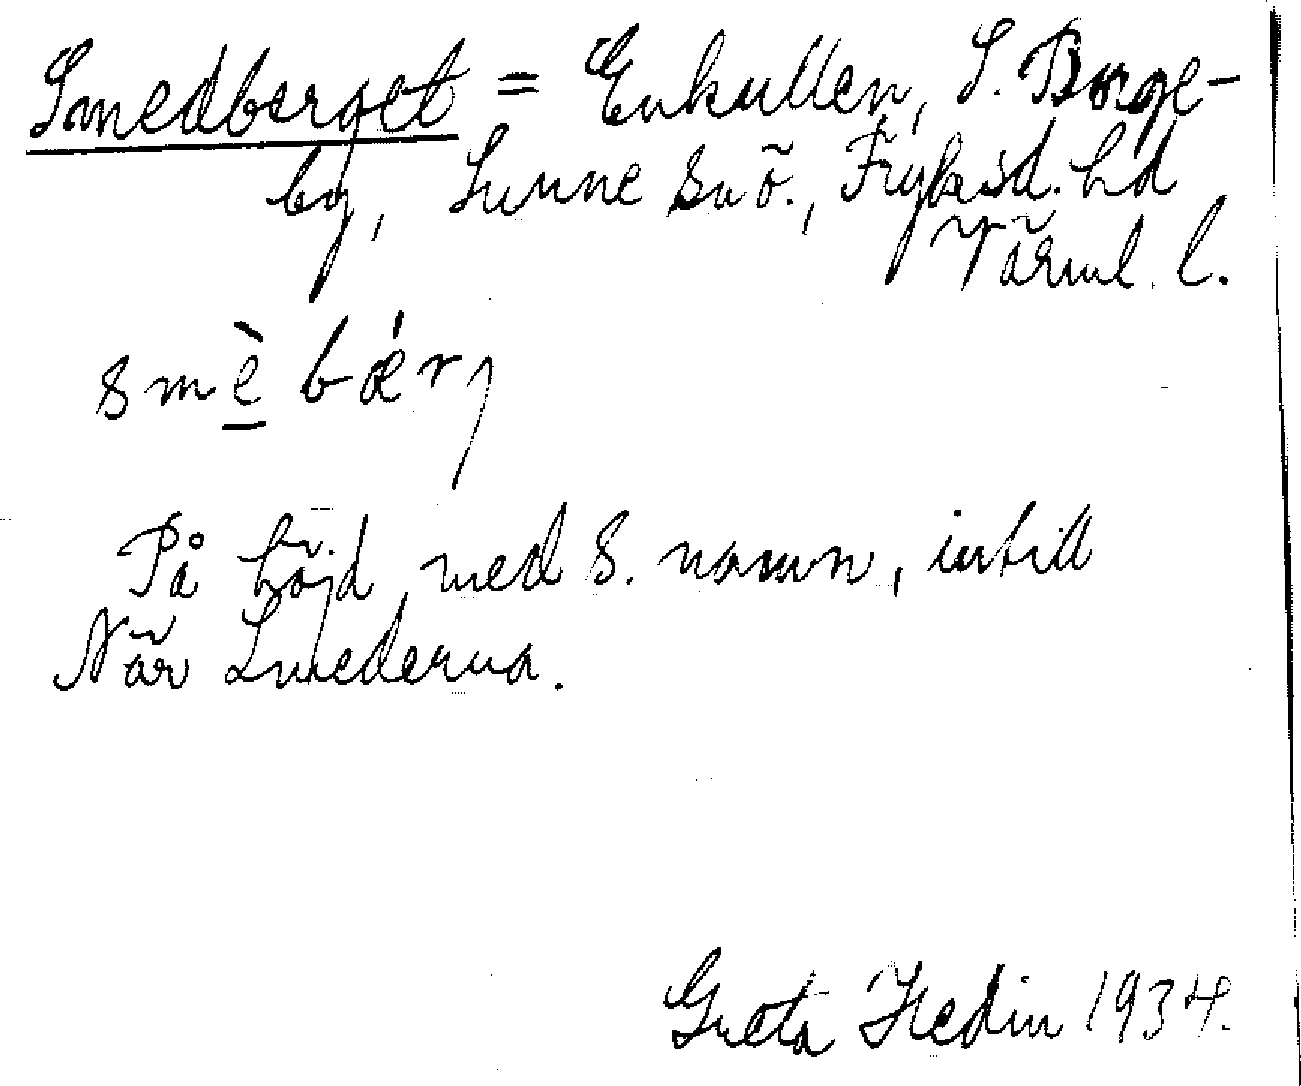 Smedberget = Enkullen, S. Borge-
by, Sunne snö., Fryksd. hd
Värml. l.
smè bǽrj
På höjd med s. namn, intill
När Smederna.
Greta Hedin 1934.